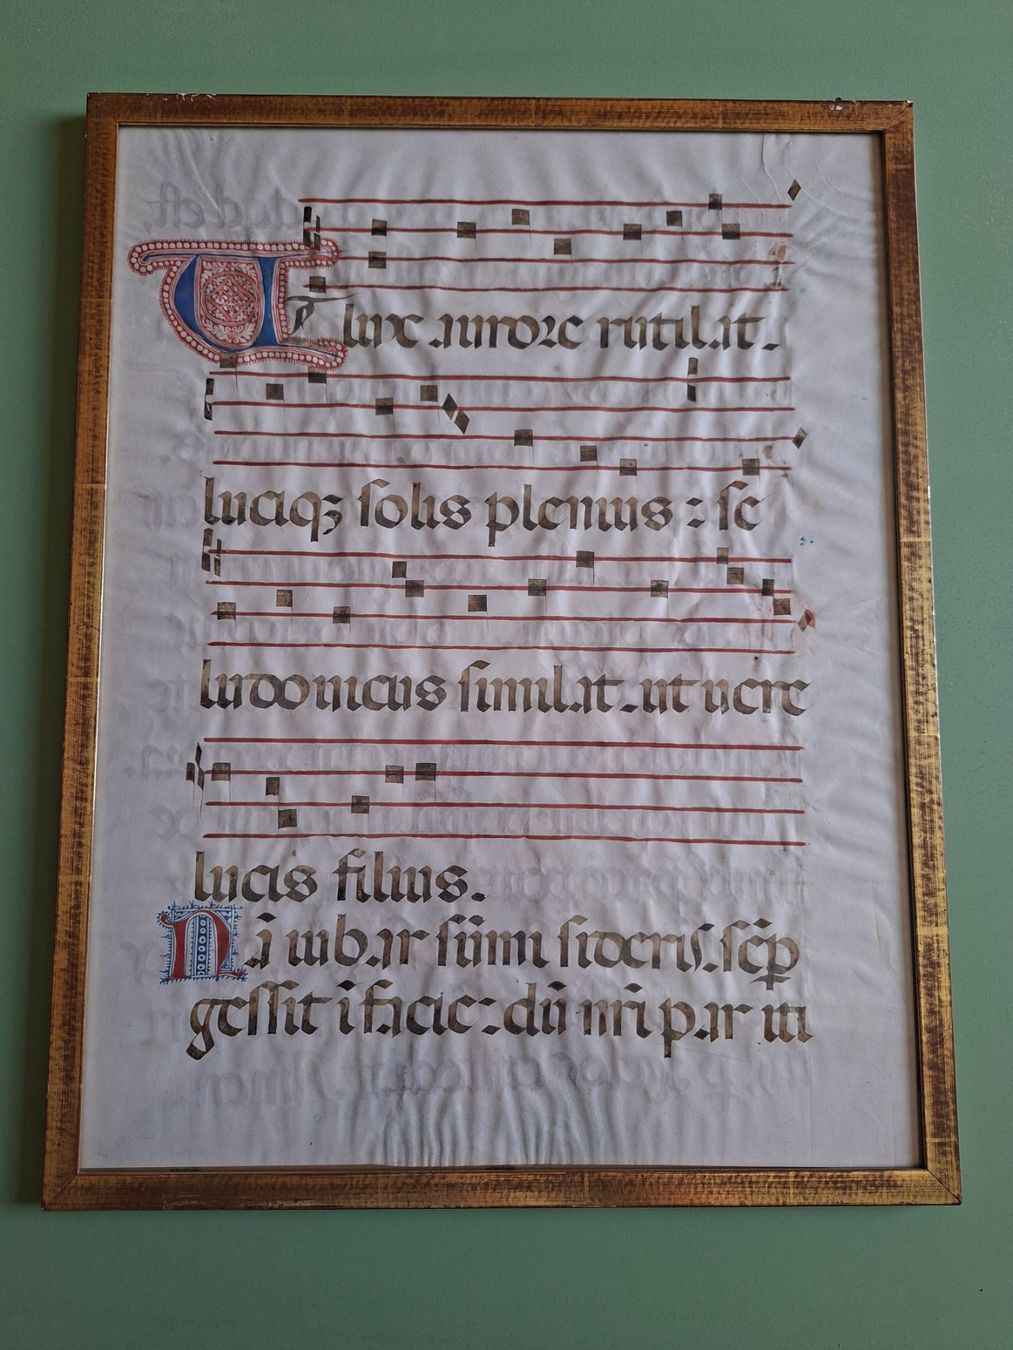 UT lux aurore rutilat.
luciq3 solis plenius: se
ludouicus simil.at.ut uere
lucis filius.
Nā iubar sūmi sideris.scēp
gessit i facie: dū nr̄i par